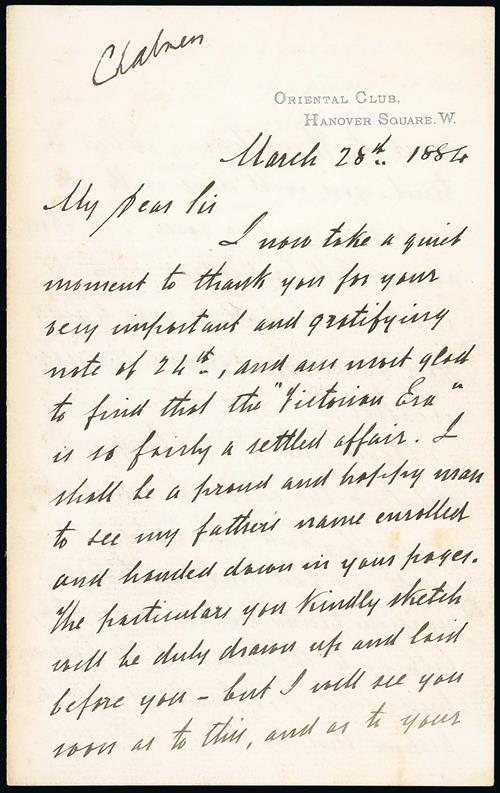 Chalmers
ORIENTAL CLUB,
HANOVER SQUARE. W.
March 28th. 1884
My Dear Sir
I now take a quiet
moment to thank you for your
very important and gratifying
note of 24th., and am most glad
to find that the "Victorian Era"
is so fairly a settled affair. I
shall be a proud and happy man
to see my father's name enrolled
and handed down in your pages.
The particulars you kindly sketch
will be duly drawn up and laid
before you – but I will see you
soon as to this, and as to your